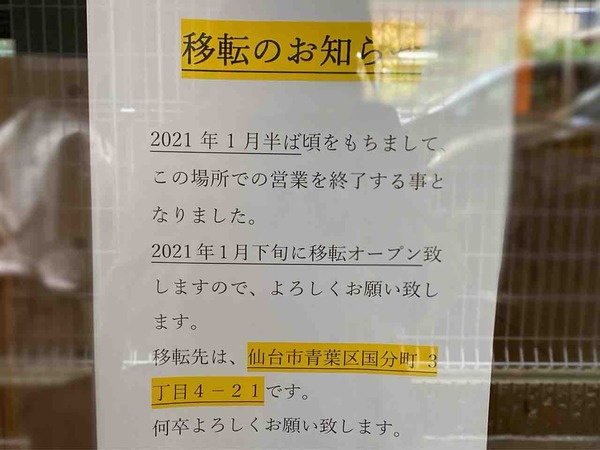 移転のお知ら
2021年1月半ば頃をもちまして、
この場所での営業を終了する事と
なりました。
2021年1月下旬に移転オープン致
しますので、よろしくお願い致し
ます。
移転先は、仙台市青葉区国分町 3
丁目4－21です。
何卒よろしくお願い致します。